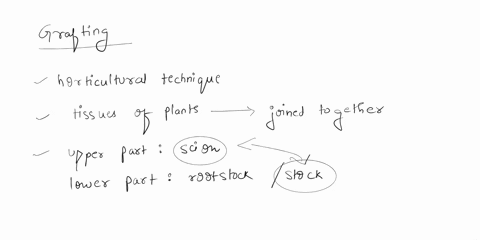 Grafting
horticultural technique
tissues of plants → joined together
upper part : scion
lower part : rootstock / stock